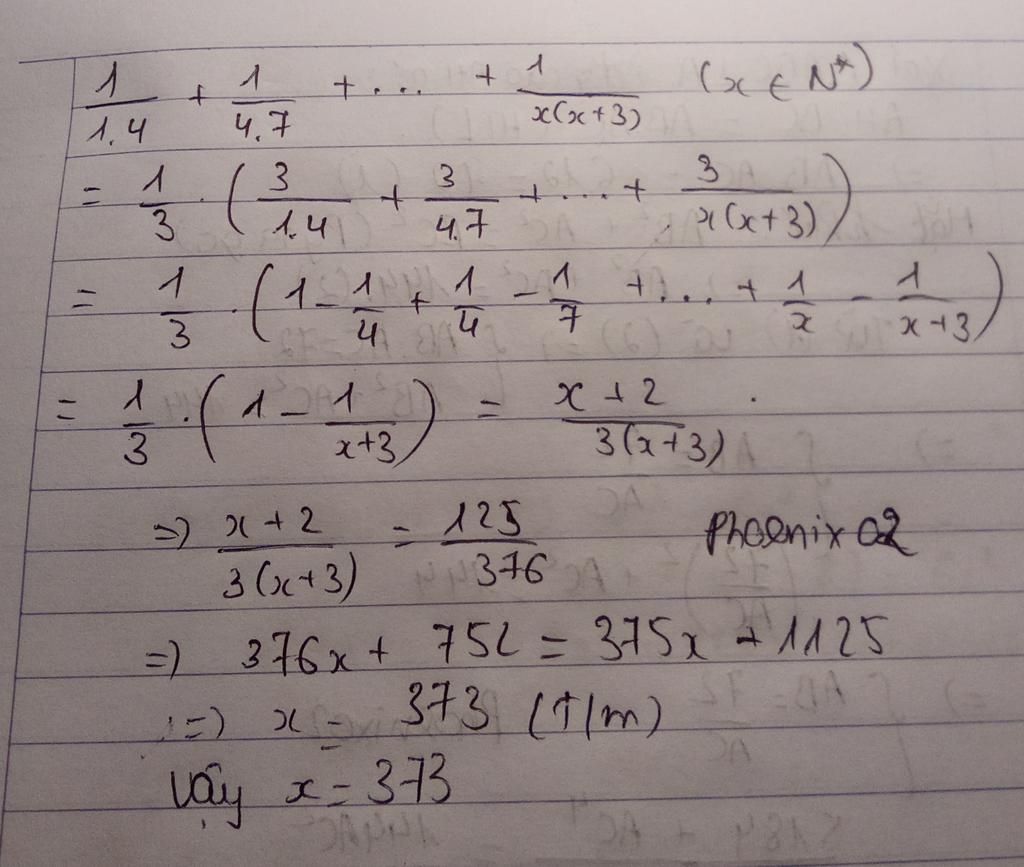 1/1.4 + 1/4.7 + ... + 1/x(x+3) (x ∈ N*)
= 1/3 . (3/1.4 + 3/4.7 + ... + 3/x(x+3))
= 1/3 . (1 - 1/4 + 1/4 - 1/7 + ... + 1/x - 1/x+3)
= 1/3 . (1 - 1/x+3) = x+2/3(x+3) .
=> x+2/3(x+3) = 125/376 Phoenix02
=> 376x + 752 = 375x + 1125
=> x = 373 (T/m)
Vậy x = 373